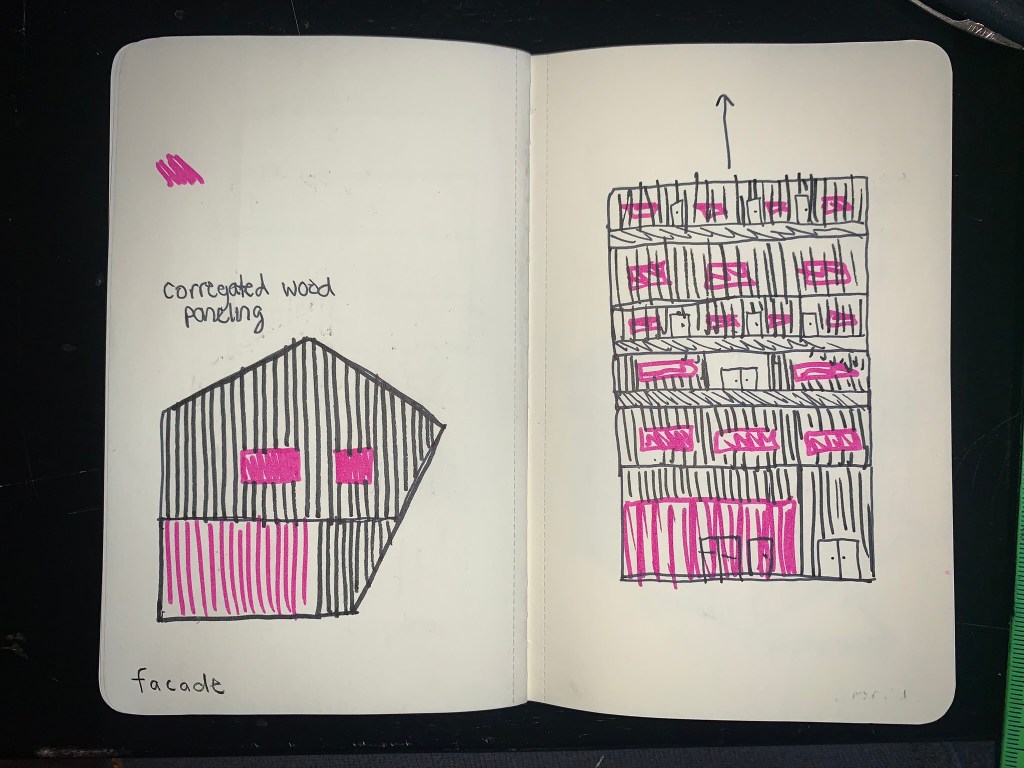 corregated wood
paneling
facade